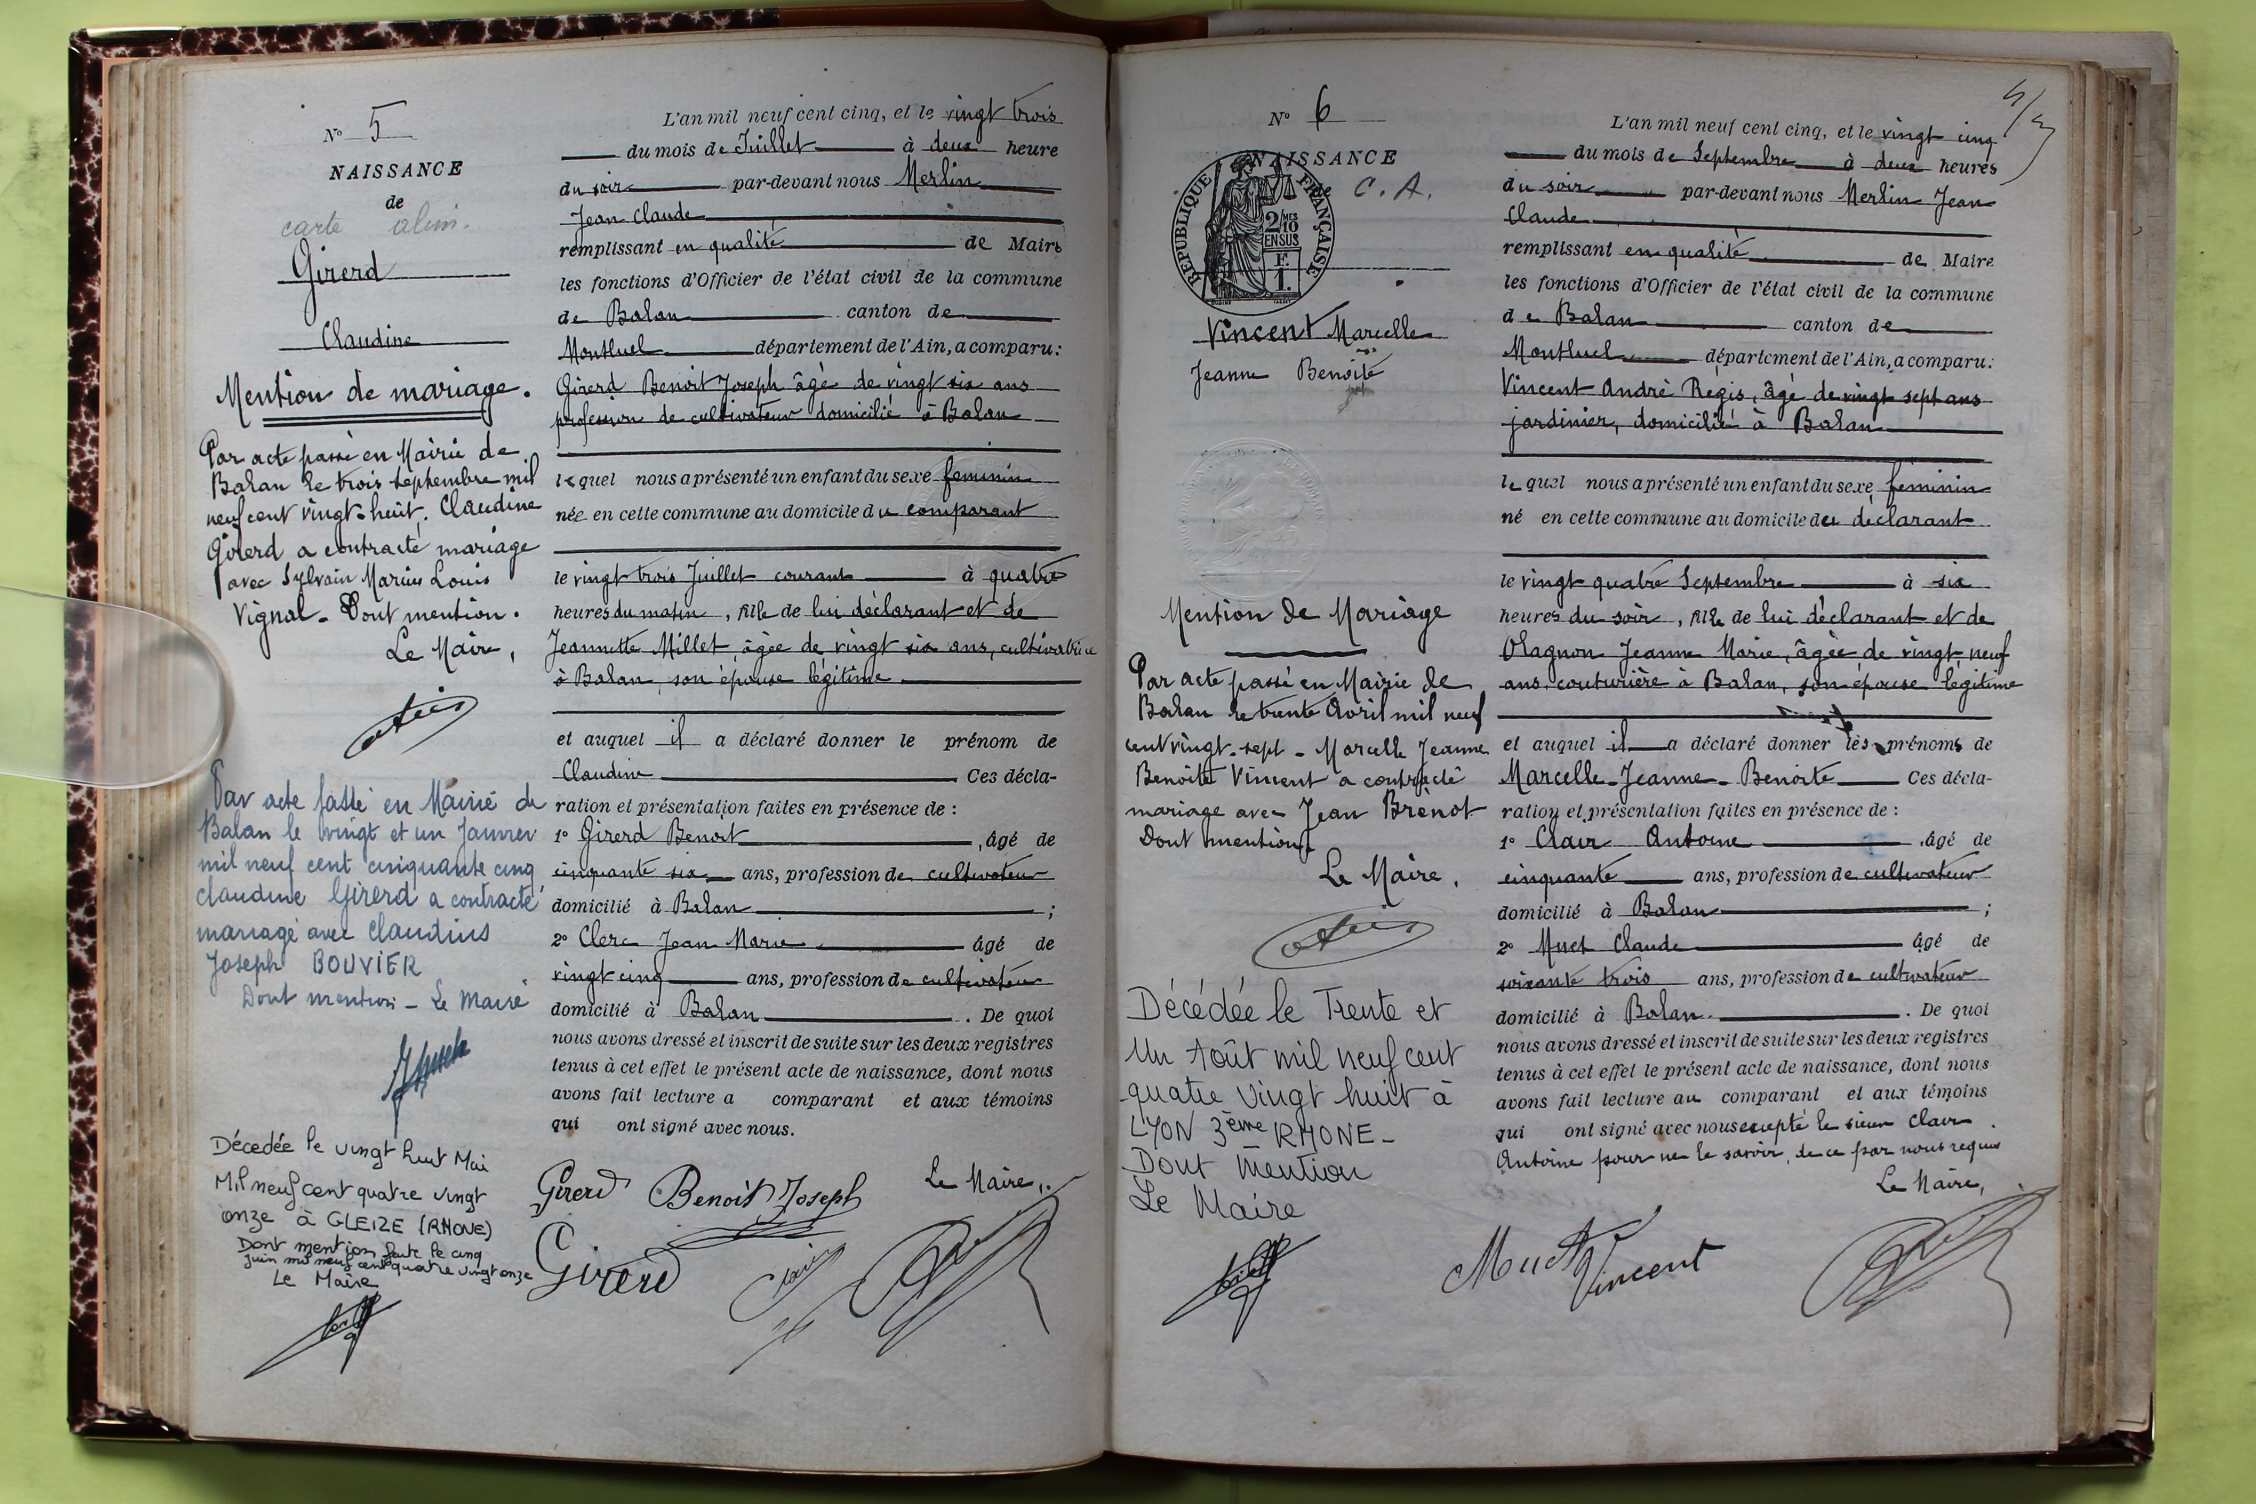 N° 5
NAISSANCE
de
carte alim.
Girerd
Claudine
Mention de mariage.
Par acte passé en Mairie de
Balan le trois septembre mil
neuf cent vingt-huit, Claudine
Girerd a contracté mariage
avec Sylvain Marius Louis
Vignal - Dont mention.
Le Maire,
Par acte passé en Mairie de
Balan le vingt et un Janvier
mil neuf cent cinquante cinq
Claudine Girerd a contracté
mariage avec Claudius
Joseph BOUVIER
Dont mention - Le Maire
Décedée le vingt huit Mai
Mil neuf cent quatre vingt
onze à GLEIZE (RHONE)
Dont mention faite le cinq
Juin mil neuf cent quatre vingt onze
Le Maire
L'an mil neuf cent cinq, et le vingt trois
du mois de Juillet à deux heure
du soir par-devant nous Merlin
Jean Claude
remplissant en qualité de Maire
les fonctions d'Officier de l'état civil de la commune
de Balan canton de
Montluel département de l'Ain, a comparu:
Girerd Benoit Joseph âgé de vingt six ans
profession de cultivateur domicilié à Balan
lequel nous a présenté un enfant du sexe feminin
née en cette commune au domicile du comparant
le vingt trois Juillet courant à quatre
heures du matin, fille de lui déclarant et de
Jeannette Millet, âgée de vingt six ans, cultivatrice
à Balan, son épouse légitime
et auquel il a déclaré donner le prénom de
Claudine Ces décla-
ration et présentation faites en présence de :
1° Girerd Benoit, âgé de
cinquante six ans, profession de cultivateur
domicilié à Balan ;
2° Clerc Jean Marie âgé de
vingt cinq ans, profession de cultivateur
domicilié à Balan . De quoi
nous avons dressé et inscrit de suite sur les deux registres
tenus à cet effet le présent acte de naissance, dont nous
avons fait lecture a comparant et aux témoins
qui ont signé avec nous.
Le Maire,
Girerd Benoit Joseph
Girerd
N° 6
NAISSANCE
de C. A.
RÉPUBLIQUE FRANÇAISE
2/10 MES
EN SUS
F.
1.
Vincent Marcelle
Jeanne Benoite
Mention de Mariage
Par acte passé en Mairie de
Balan le trente Avril mil neuf
cent vingt-sept - Marcelle Jeanne
Benoite Vincent a contracté
mariage avec Jean Brénot
Dont mention
Le Maire,
Décédée le Trente et
Un Août mil neuf cent
quatre vingt huit à
LYON 3ème RHONE -
Dont Mention
Le Maire
L'an mil neuf cent cinq, et le vingt cinq
du mois de Septembre à deux heures
du soir par-devant nous Merlin Jean
Claude
remplissant en qualité de Maire
les fonctions d'Officier de l'état civil de la commune
de Balan canton de
Montluel département de l'Ain, a comparu:
Vincent André Régis, âgé de vingt sept ans
jardinier, domicilié à Balan
lequel nous a présenté un enfant du sexe feminin
né en cette commune au domicile du déclarant
le vingt quatre Septembre à six
heures du soir, fille de lui déclarant et de
Olagnon Jeanne Marie, âgée de vingt neuf
ans, couturière à Balan, son épouse légitime
et auquel il a déclaré donner les prénoms de
Marcelle-Jeanne-Benoite Ces décla-
ration et présentation faites en présence de :
1° Clair Antoine , âgé de
cinquante ans, profession de cultivateur
domicilié à Balan ;
2° Muet Claude âgé de
soixante trois ans, profession de cultivateur
domicilié à Balan . De quoi
nous avons dressé et inscrit de suite sur les deux registres
tenus à cet effet le présent acte de naissance, dont nous
avons fait lecture au comparant et aux témoins
qui ont signé avec nous excepté le sieur Clair
Antoine pour ne le savoir, de ce par nous requis
Le Maire,
Muet Vincent